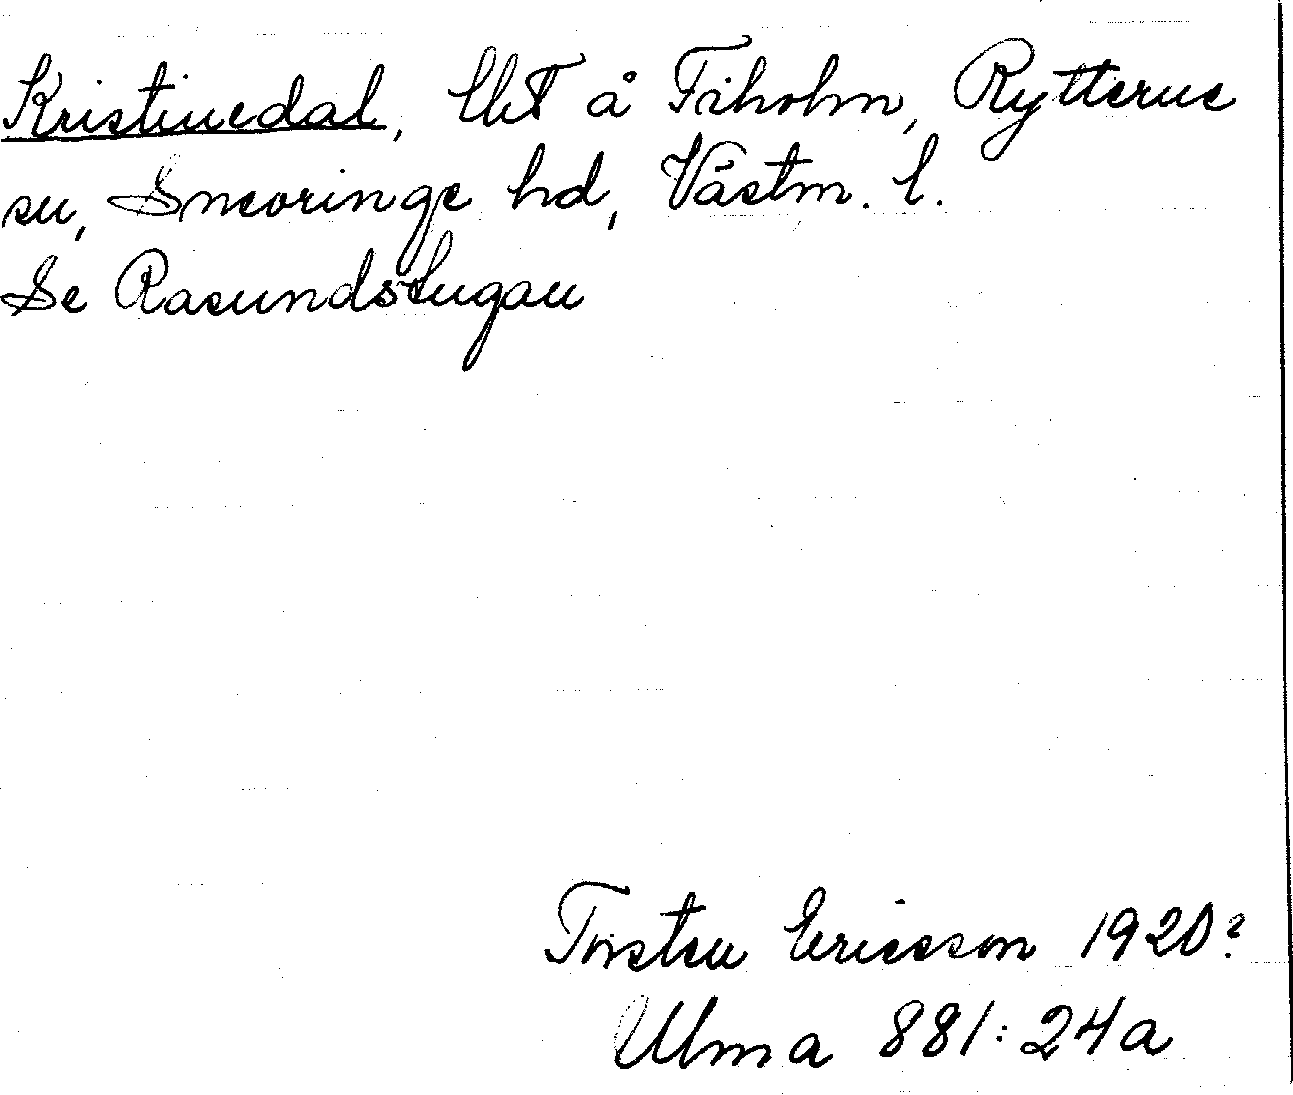 Kristinedal, lht å Tiholm, Rytterne
sn, Snevringe hd, Västm. l.
Se Rasundstugan
Torsten Ericsson 1920?
Ulma 881:24a